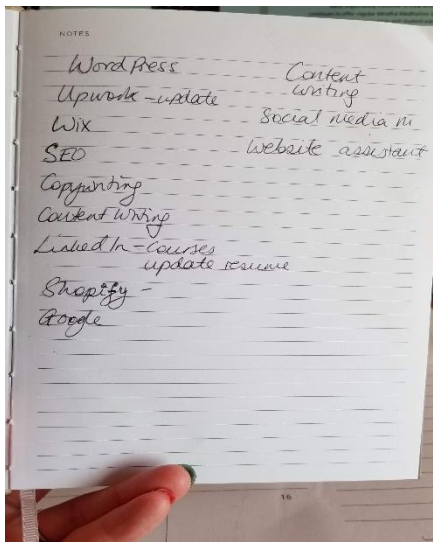 NOTES
WordPress
Upwork - update
Wix
SEO
Copywriting
Content Writing
LinkedIn - courses
update resume
Shopify -
Google
Content
writing
Social media m
Website assistant
16